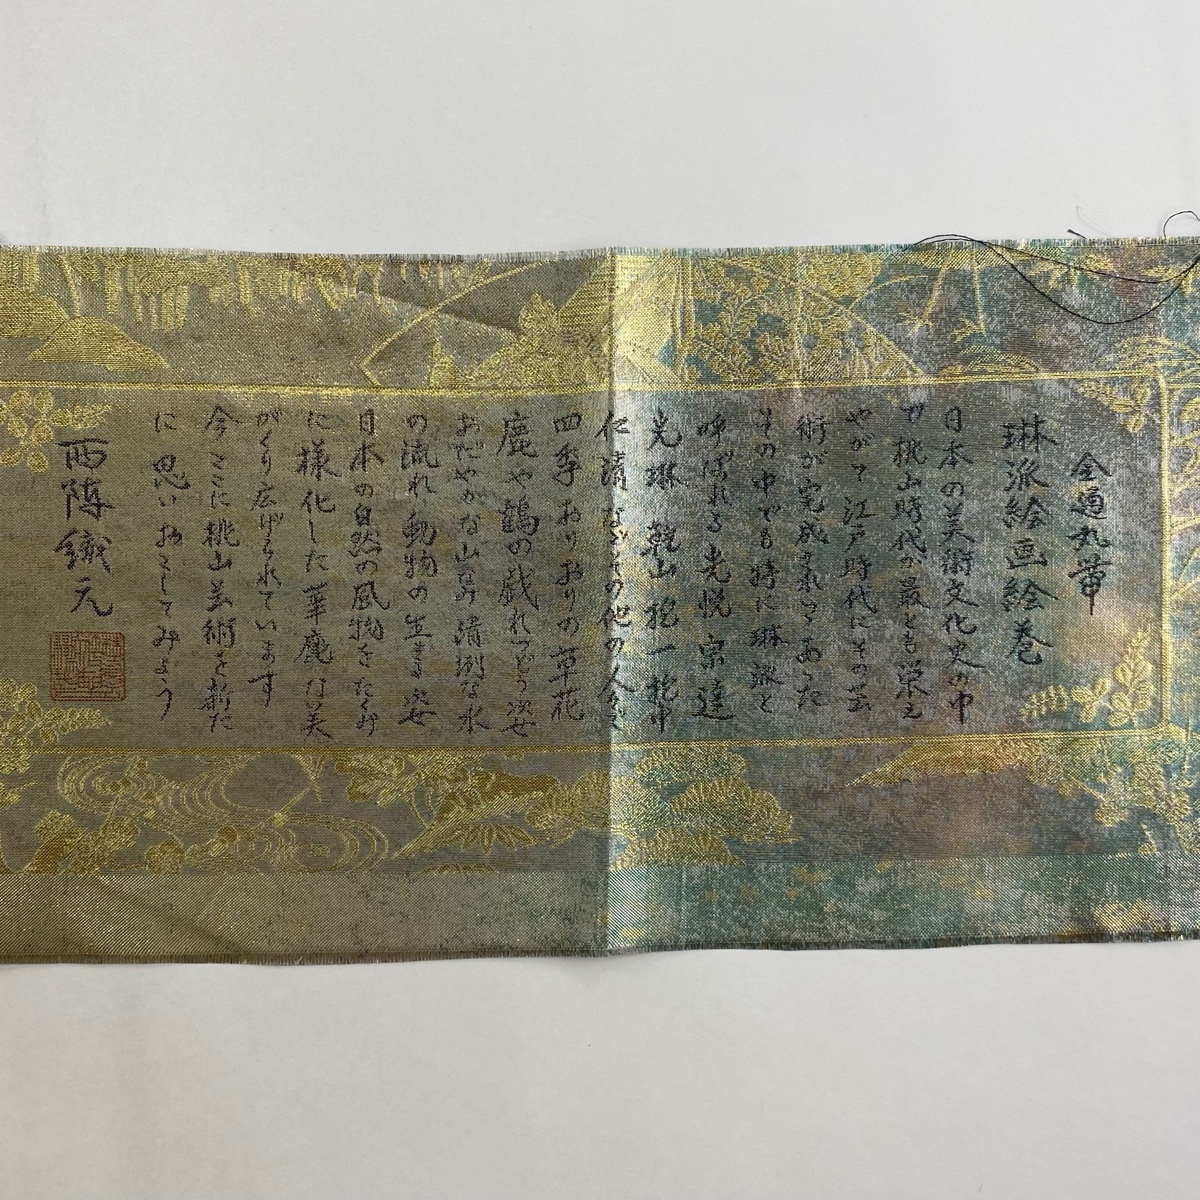 全通丸帯
琳派絵画絵巻
日本の美術文化史の中
で桃山時代が最とも栄え
やがて江戸時代にその芸
術が完成されつゝあった
その中でも特に琳派と
呼ばれる光悦宗達
光琳乾山抱一乾中
仁清などその他の人々
四季おりおりの草花
鹿や鶴の戯れつどう姿
おだやかな山並 清冽な水
の流れ動物の生きる姿
日本の自然の風物をたくみ
に様化した華麗な美
がくり広げられています
今ここに桃山芸術を新た
に思いおこしてみよう
西陣織元